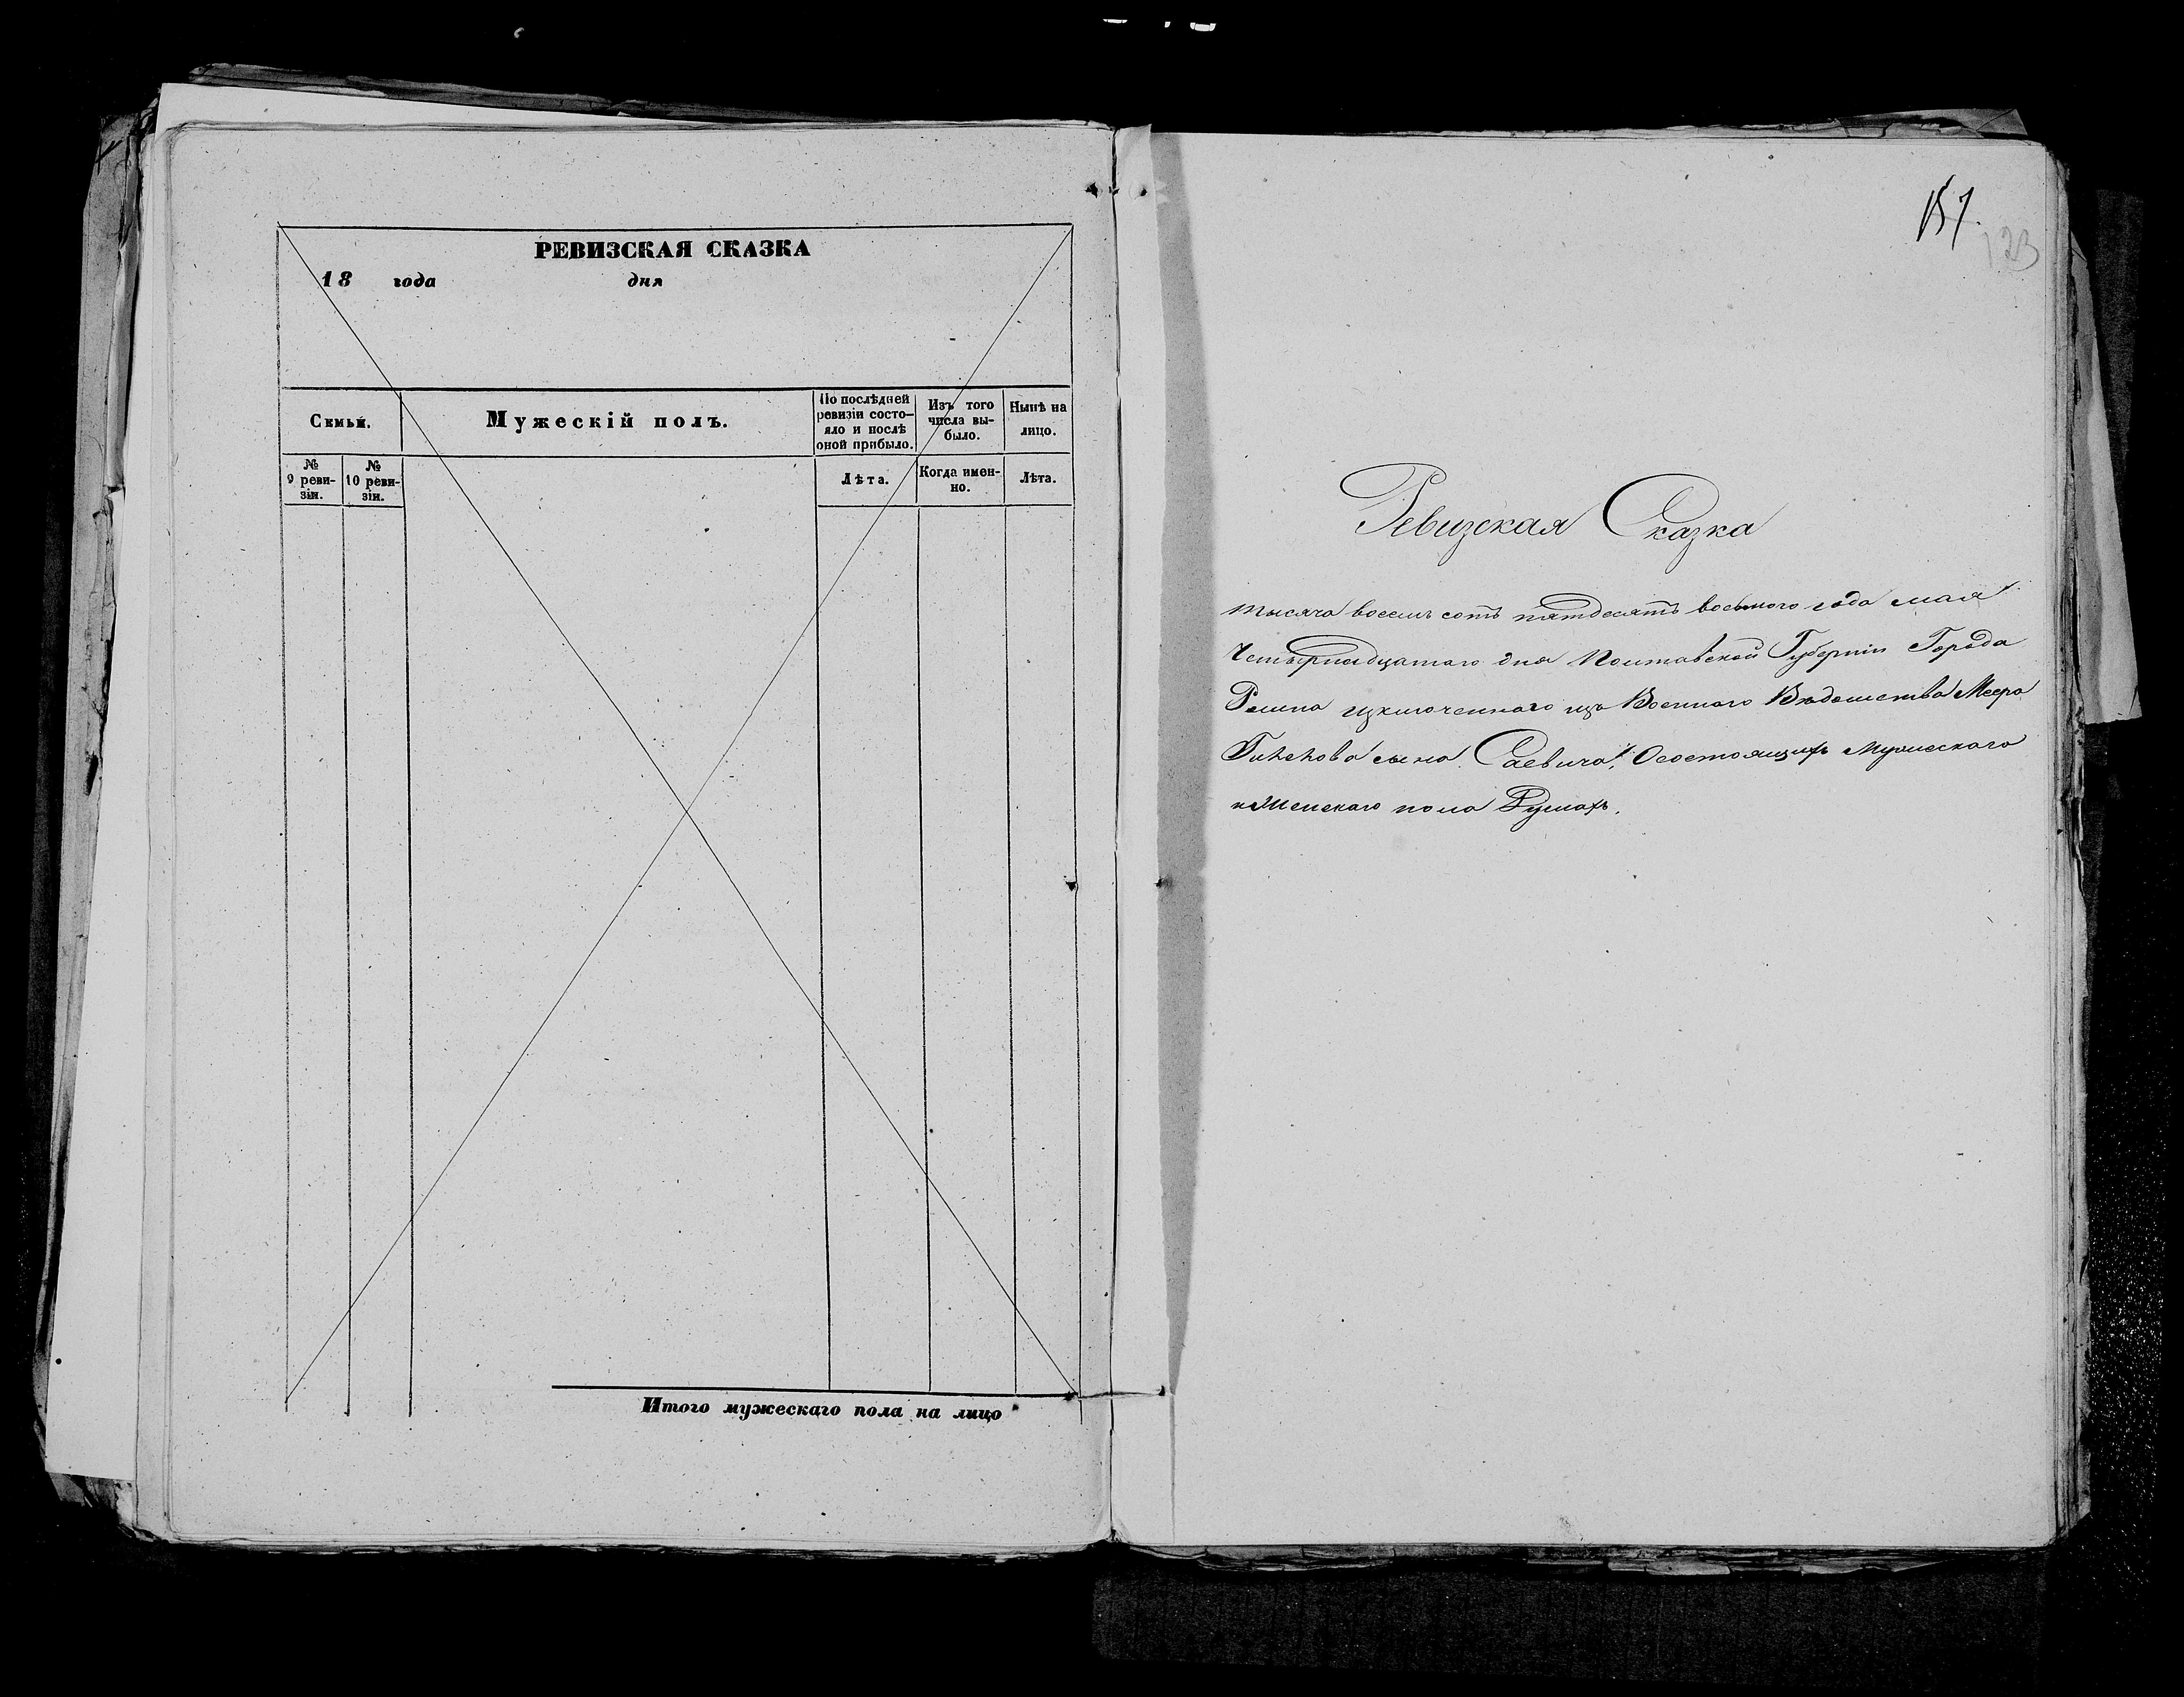 РЕВИЗСКАЯ СКАЗКА
18 года дня
Семьи.
Мужескій полъ.
По послѣдней ревизіи состо-
яло и послѣ
оной прибыло.
Изъ того
числа вы-
было.
Нынѣ на
лицо.
№
9 реви-
зіи.
№
10 реви-
зіи.
Лѣта.
Когда имен-
но.
Лѣта.
Итого мужескаго пола на лицо
123
Ревизская Сказка
тысяча восемь сотъ пятдесятъ восьмого года мая
Четырнадцатаго дня Полтавской Губерніи Города
Ромна изключеннаго изъ Военнаго Вѣдомства Меера
сына Саевича, Осостоящихъ мужескаго
и Женскаго пола Душахъ.